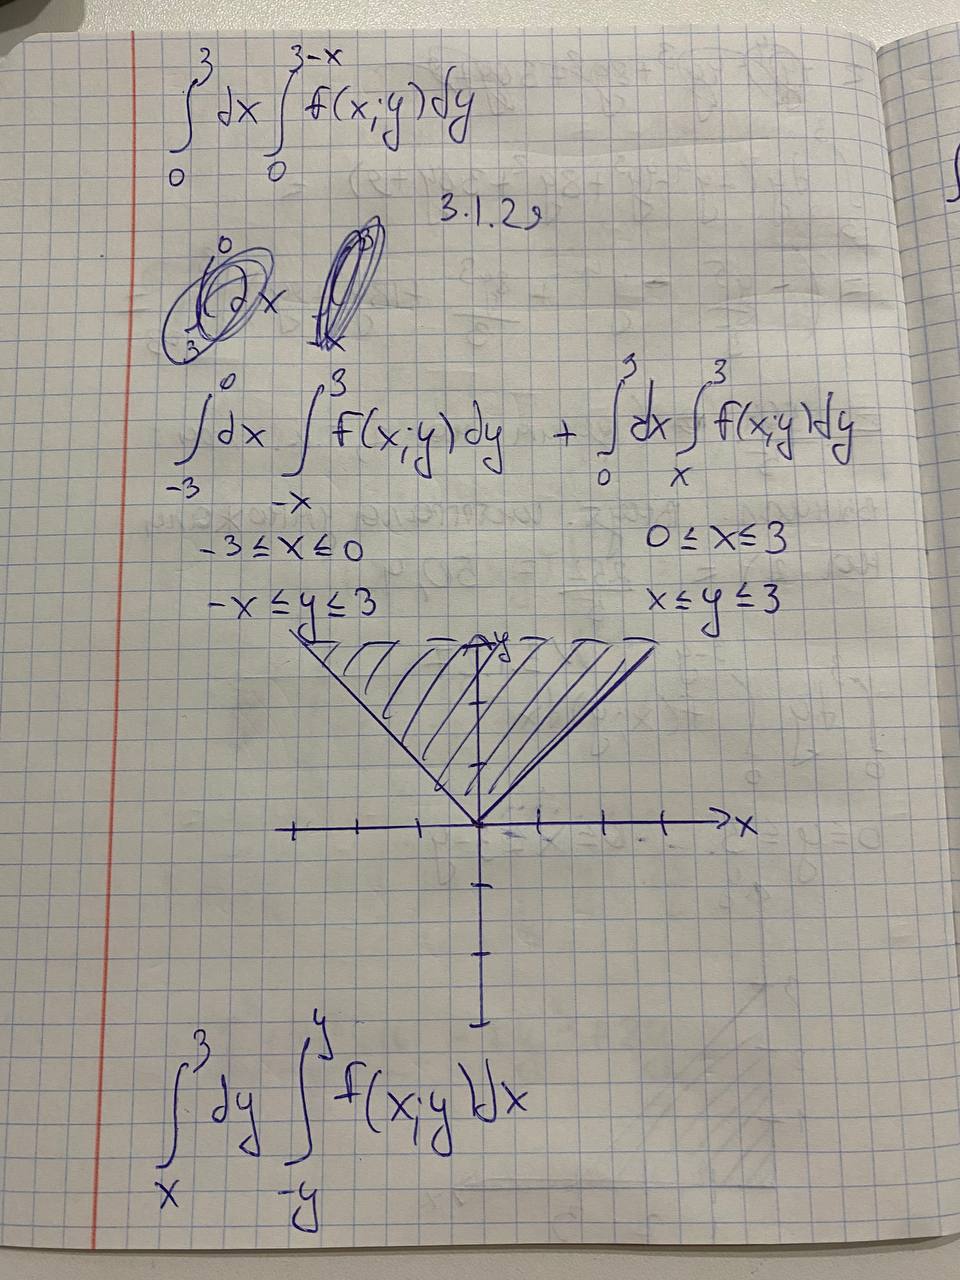 ∫₀³ dx ∫₀³⁻ˣ f(x;y)dy
3.1.2
∫₋₃⁰ dx ∫₋ₓ³ f(x;y)dy + ∫₀³ dx ∫ₓ³ f(x;y)dy
-3 ≤ x ≤ 0 0 ≤ x ≤ 3
-x ≤ y ≤ 3 x ≤ y ≤ 3
y
x
∫ₓ³ dy ∫₋y^y f(x;y)dx